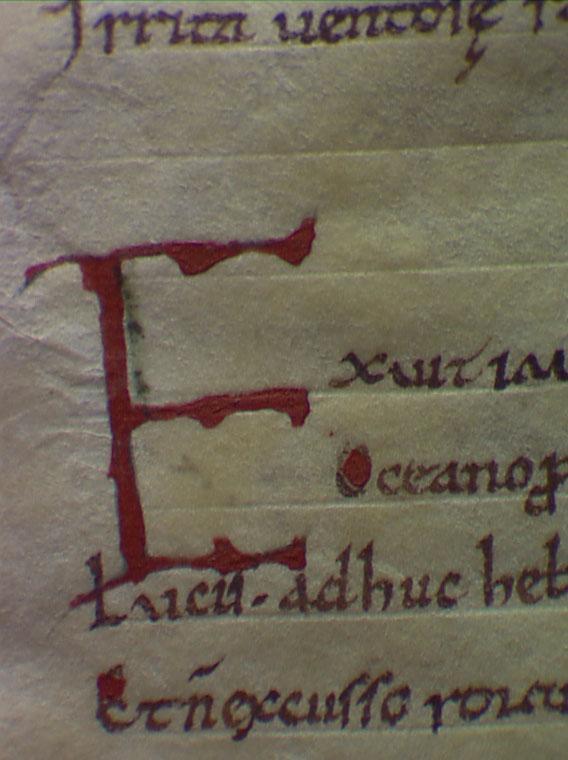 Irrita uentosę
Exuit im
Oceano ꝓ
Lucis. adhuc heb
Et n̄ excusso rora